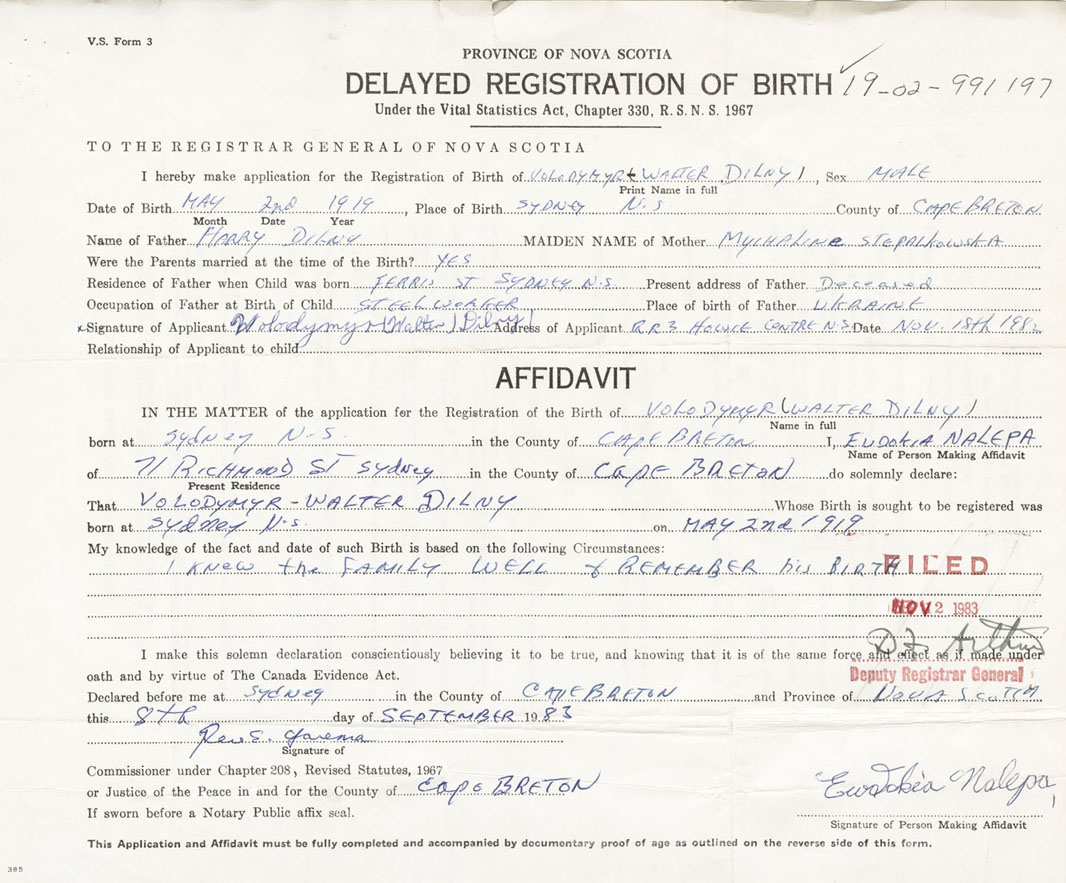 V.S. Form 3
PROVINCE OF NOVA SCOTIA
DELAYED REGISTRATION OF BIRTH 19-02-991197
Under the Vital Statistics Act, Chapter 330, R.S.N.S. 1967
TO THE REGISTRAR GENERAL OF NOVA SCOTIA
I hereby make application for the Registration of Birth of VOLODYMYR (WALTER DILNY), Sex MALE
Print Name in full
Date of Birth MAY 2nd 1919, Place of Birth SYDNEY N.S. County of CAPE BRETON
Month Date Year
Name of Father HARRY DILNY MAIDEN NAME of Mother MYCHALINE STEPALKOWSKA
Were the Parents married at the time of the Birth? YES
Residence of Father when Child was born FERRIS ST SYDNEY N.S. Present address of Father Deceased
Occupation of Father at Birth of Child STEELWORKER Place of birth of Father UKRAINE
Signature of Applicant Volodymyr (Walter) Dilny Address of Applicant R.R.3 CENTRE N.S. Date NOV. 18th
Relationship of Applicant to child
AFFIDAVIT
IN THE MATTER of the application for the Registration of the Birth of VOLODYMYR (WALTER DILNY)
Name in full
born at Sydney N.S. in the County of CAPE BRETON I, EUDOKIA NALEPA
Name of Person Making Affidavit
of 71 RICHMOND ST Sydney in the County of CAPE BRETON do solemnly declare:
Present Residence
That VOLODYMYR-WALTER DILNY Whose Birth is sought to be registered was
born at Sydney N.S. on MAY 2nd 1919
My knowledge of the fact and date of such Birth is based on the following Circumstances:
I KNEW the FAMILY WELL & REMEMBER his BIRTH
FILED
NOV 2 1983
D.F. Arthur
I make this solemn declaration conscientiously believing it to be true, and knowing that it is of the same force and effect as if made under
Deputy Registrar General
oath and by virtue of The Canada Evidence Act.
Declared before me at Sydney in the County of CAPE BRETON and Province of NOVA SCOTIA
this 8th day of SEPTEMBER 1983
Rev S.
Signature of
Commissioner under Chapter 208, Revised Statutes, 1967
or Justice of the Peace in and for the County of Cape BRETON
Ewdokia Nalepa
If sworn before a Notary Public affix seal.
Signature of Person Making Affidavit
This Application and Affidavit must be fully completed and accompanied by documentary proof of age as outlined on the reverse side of this form.
385